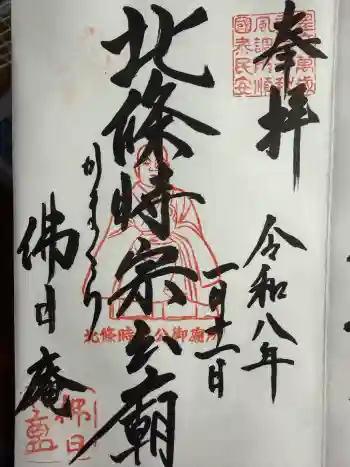 奉拝
令和八年
一月十一日
北條時宗公廟
かまくら
佛日庵
北條時宗公御廟所
佛日庵